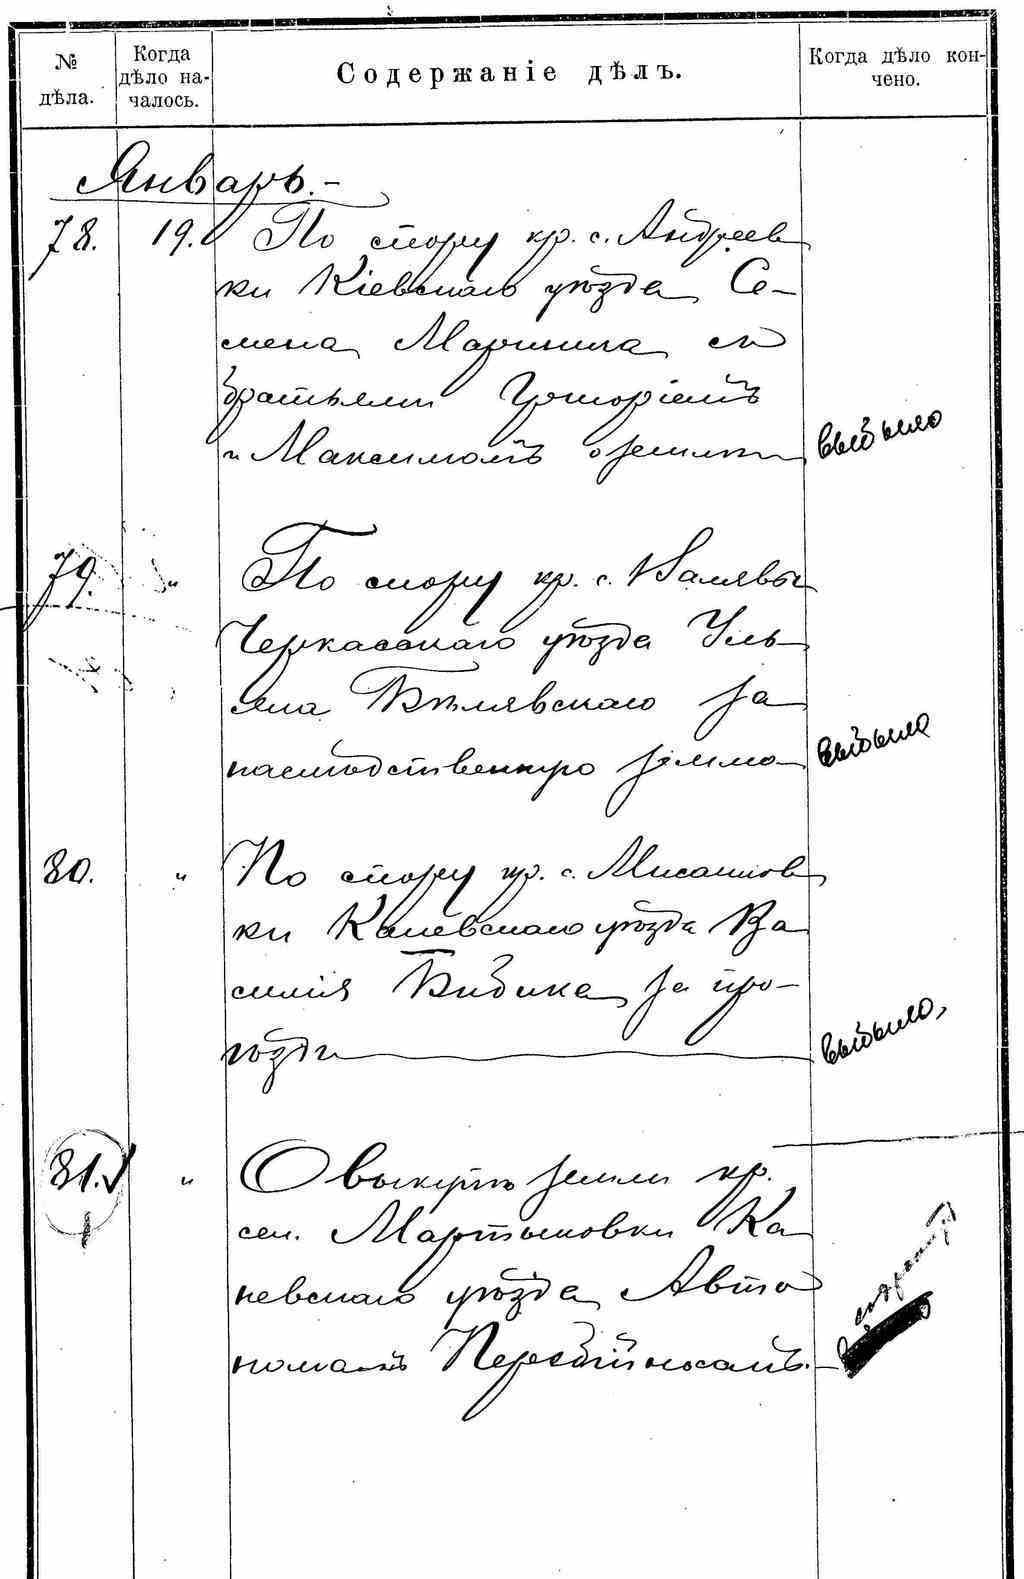 № дѣла.
Когда дѣло на-
чалось.
Содержаніе дѣлъ.
Когда дѣло кон-
чено.
Январь.-
78. 19. По спору кр. с. Андреев
ки Кіевскаго уѣзда Се-
мена Маринича съ
братьями Григоріемъ
и Максимомъ о земли выбыло
79. " По спору кр. с. Валявы
Черкасскаго уѣзда Уль-
яна Бѣлявскаго за
наслѣдственную землю выбыла
80. " По спору кр. с. Мисайлов
ки Каневскаго уѣзда Ва
силія Бибика за про-
ѣзды выбыло,
81. " О выкупѣ земли кр.
сел. Мартыновки Ка
невскаго уѣзда Авто
номомъ Перебійносомъ.-